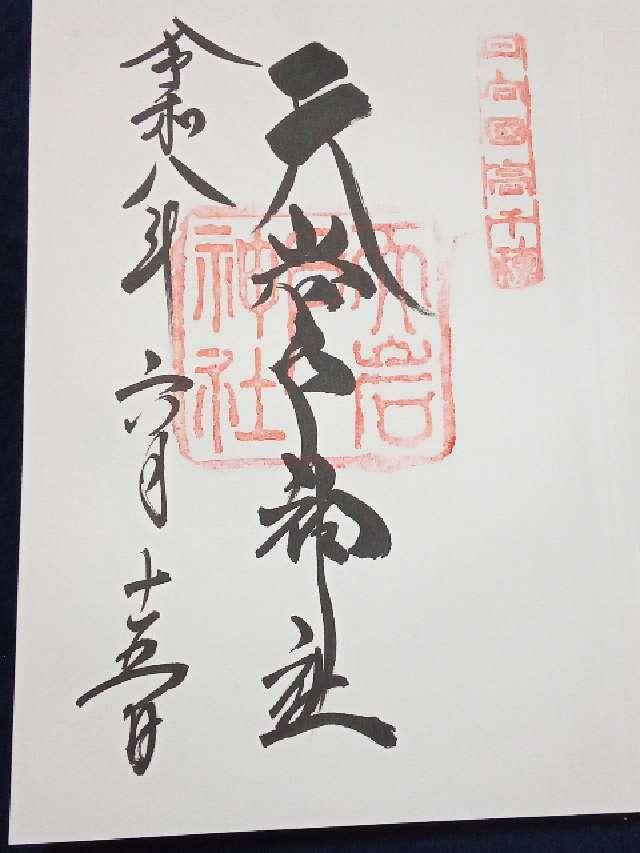 日向國高千穂
天岩戸神社
天岩戸神社
令和八年六月十五日